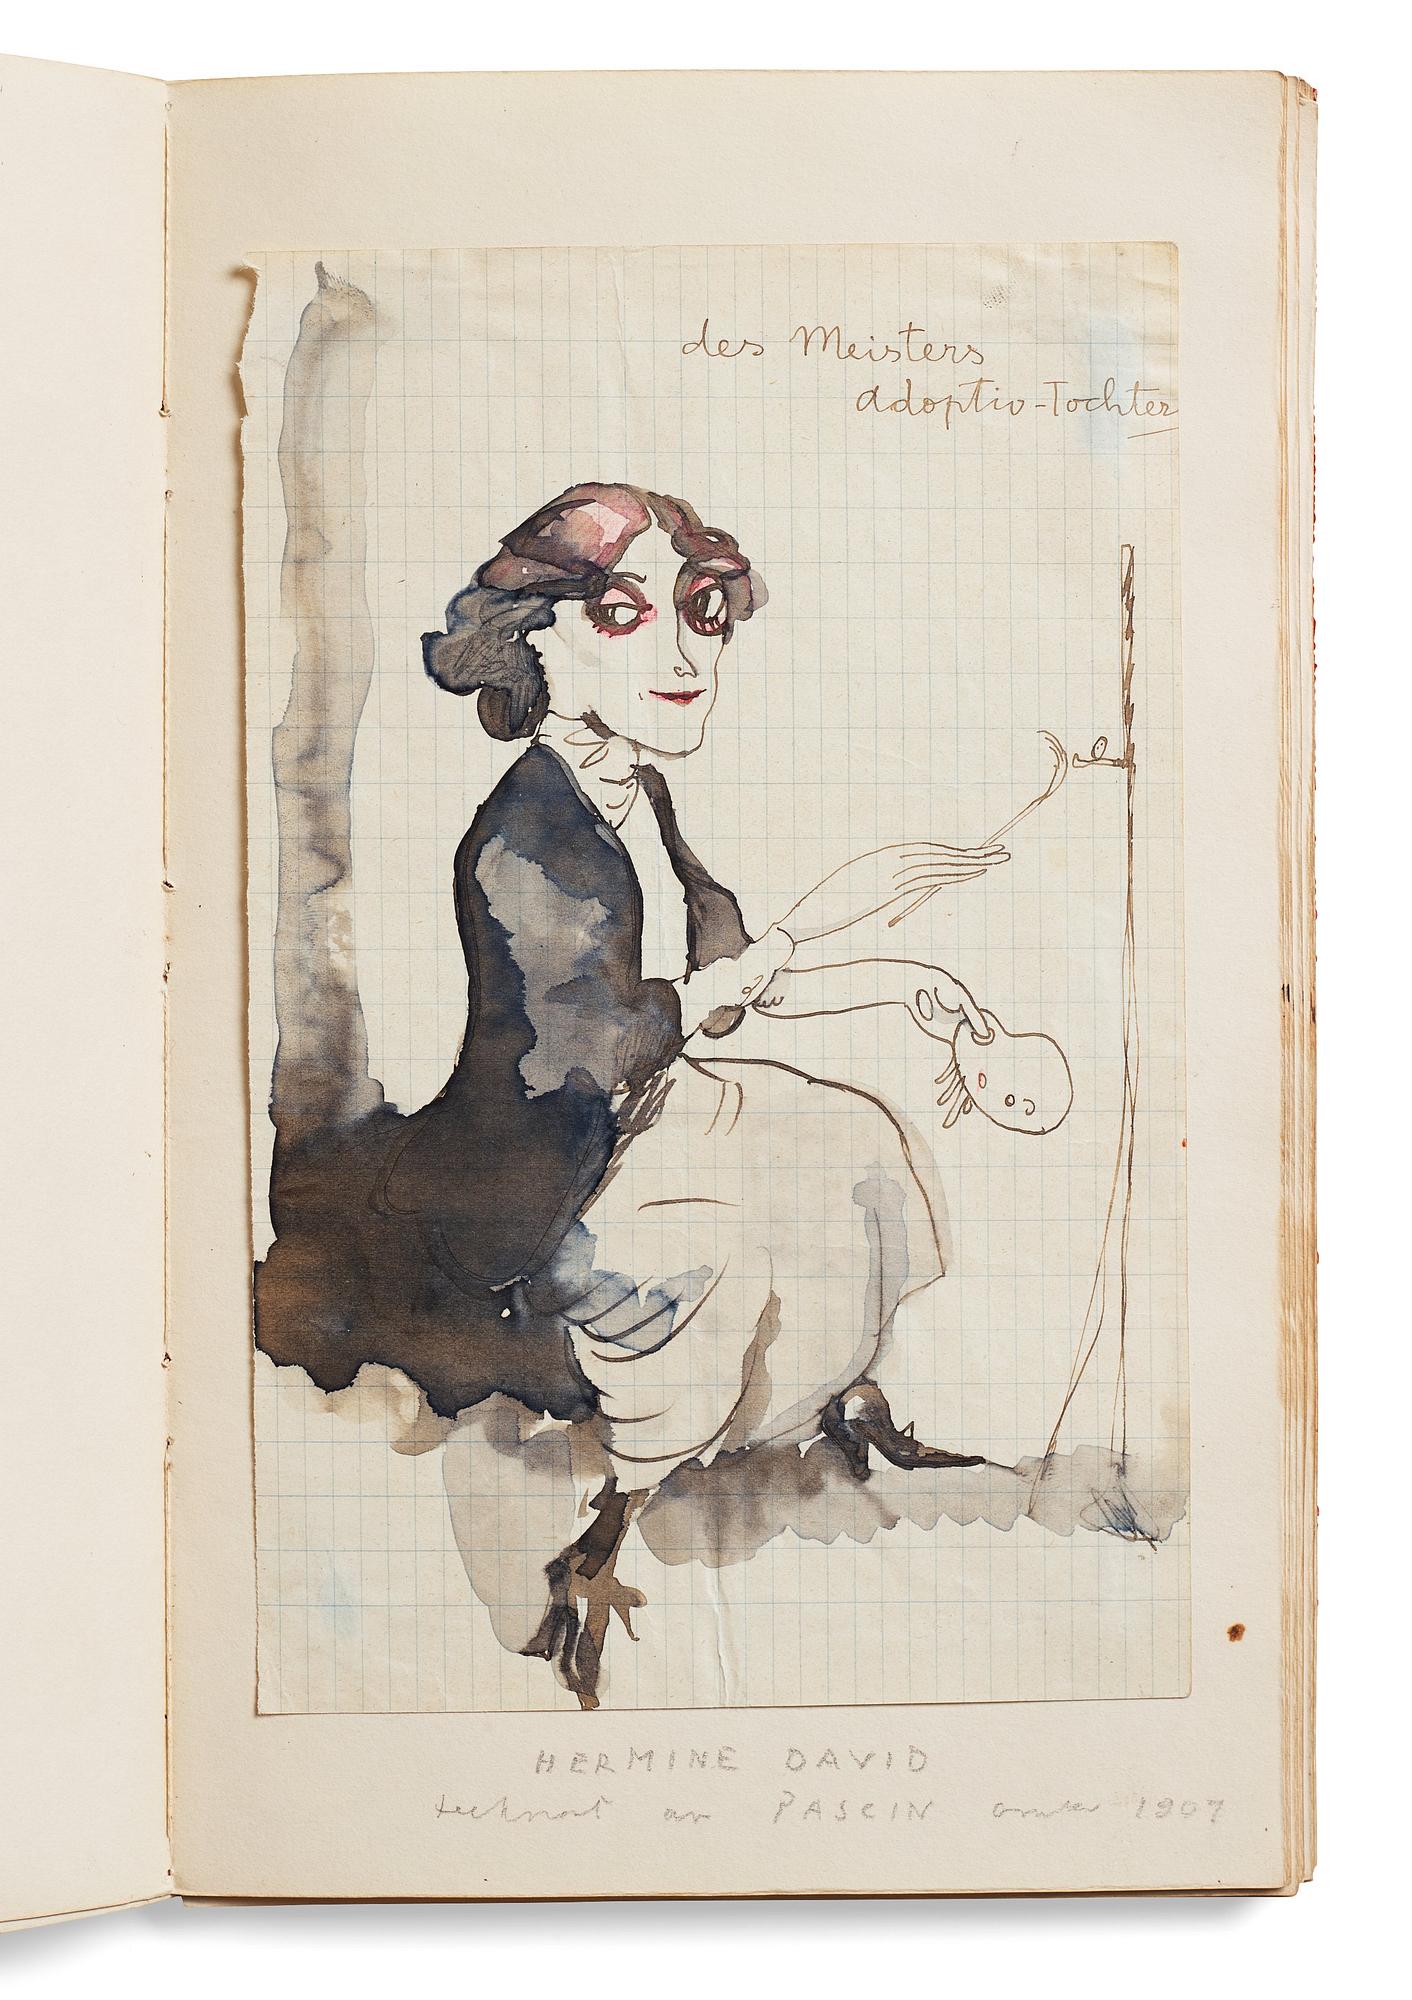 des Meisters
adoptiv-Tochter
HERMINE DAVID
tecknat av PASCIN omkr 1907